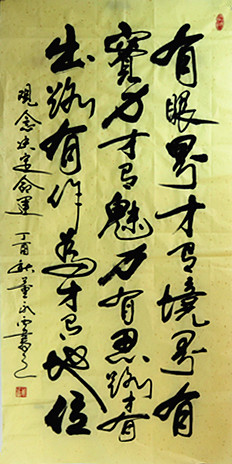 有眼界才有境界有
实力才有魅力有思路才有
出路有作为才有地位
观念决定命运 丁酉秋董永